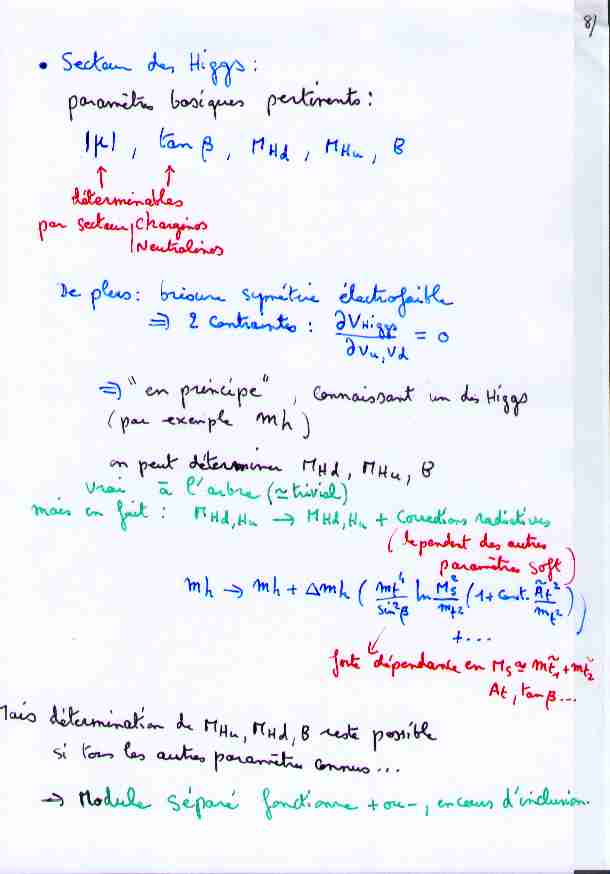 8/
• Secteur des Higgs :
paramètres basiques pertinents :
|μ| , tan β , M_Hd , M_Hu , B
↑ ↑
déterminables
par secteur | Charginos
| Neutralinos
De plus : brisure symétrie électrofaible
⇒ 2 contraintes : ∂V_Higgs / ∂v_u, v_d = 0
⇒ "en principe" , connaissant un des Higgs
(par exemple mh)
on peut déterminer M_Hd , M_Hu , B
vrai à l'arbre (≃ trivial)
mais en fait : M_Hd,Hu → M_Hd,Hu + corrections radiatives
(dépendent des autres
paramètres soft)
mh → mh + Δmh ( mt⁴/sin²β ln M_S²/mt² (1 + const. Ãt²/mt²) )
+ ...
↙
forte dépendance en M_S ≃ m t̃₁ + m t̃₂
At, tan β ...
Mais détermination de M_Hu, M_Hd, B reste possible
si tous les autres paramètres connus ...
→ Module séparé fonctionne + ou -, en cours d'inclusion.